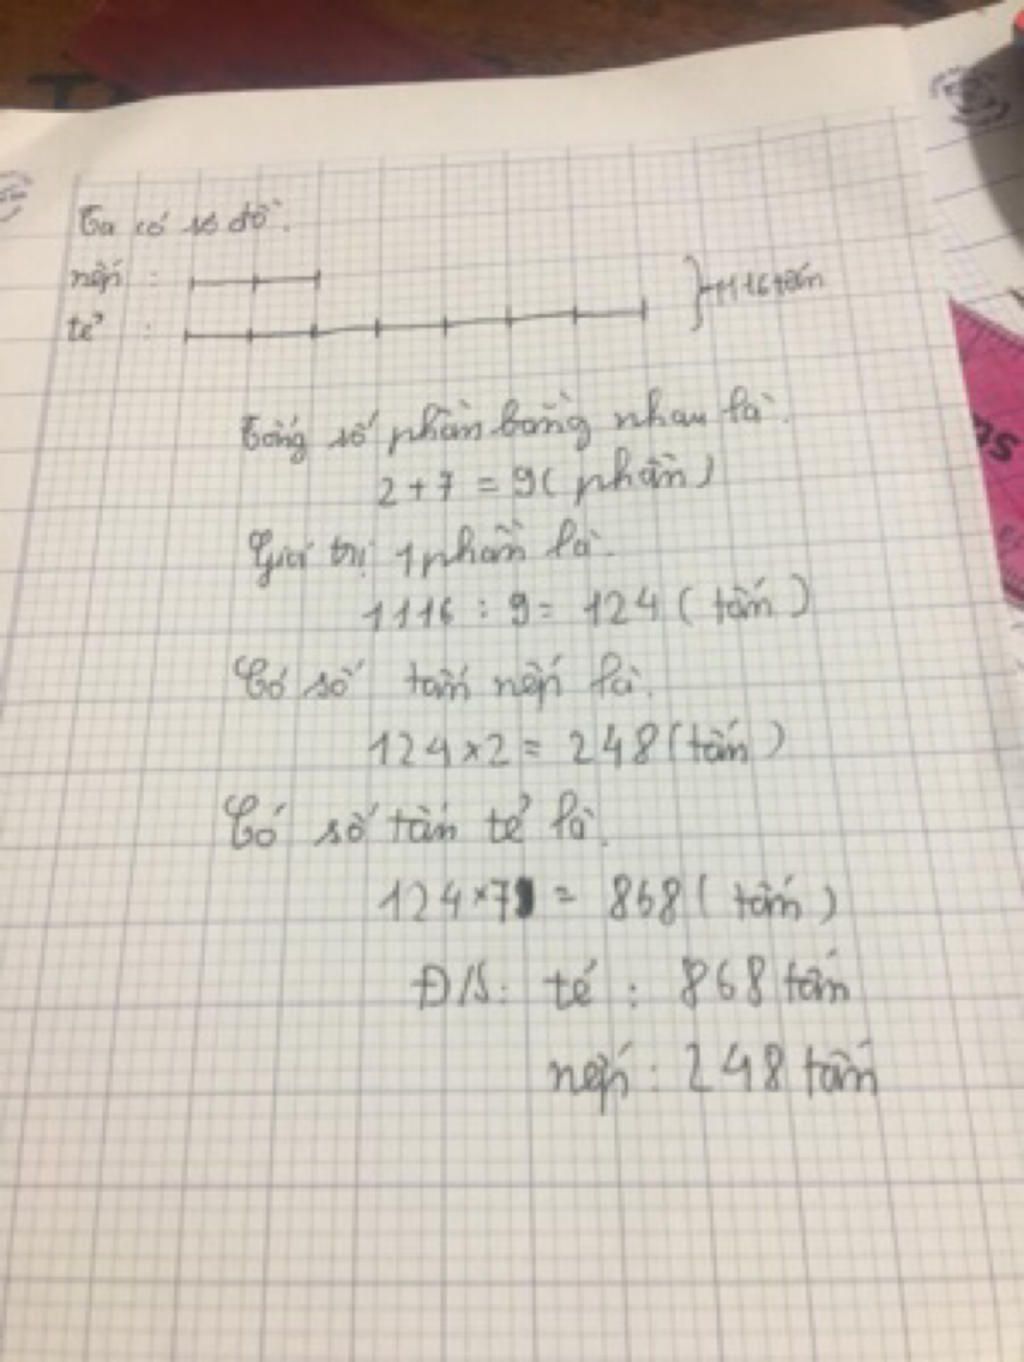 Ta có sơ đồ.
nếp :
tẻ :
1116 tấn
Tổng số phần bằng nhau là.
2 + 7 = 9 ( phần )
Giá trị 1 phần là.
1116 : 9 = 124 ( tấn )
Có số tấn nếp là.
124 × 2 = 248 ( tấn )
Có số tấn tẻ là.
124 × 7 = 868 ( tấn )
Đ/S: tẻ : 868 tấn
nếp : 248 tấn